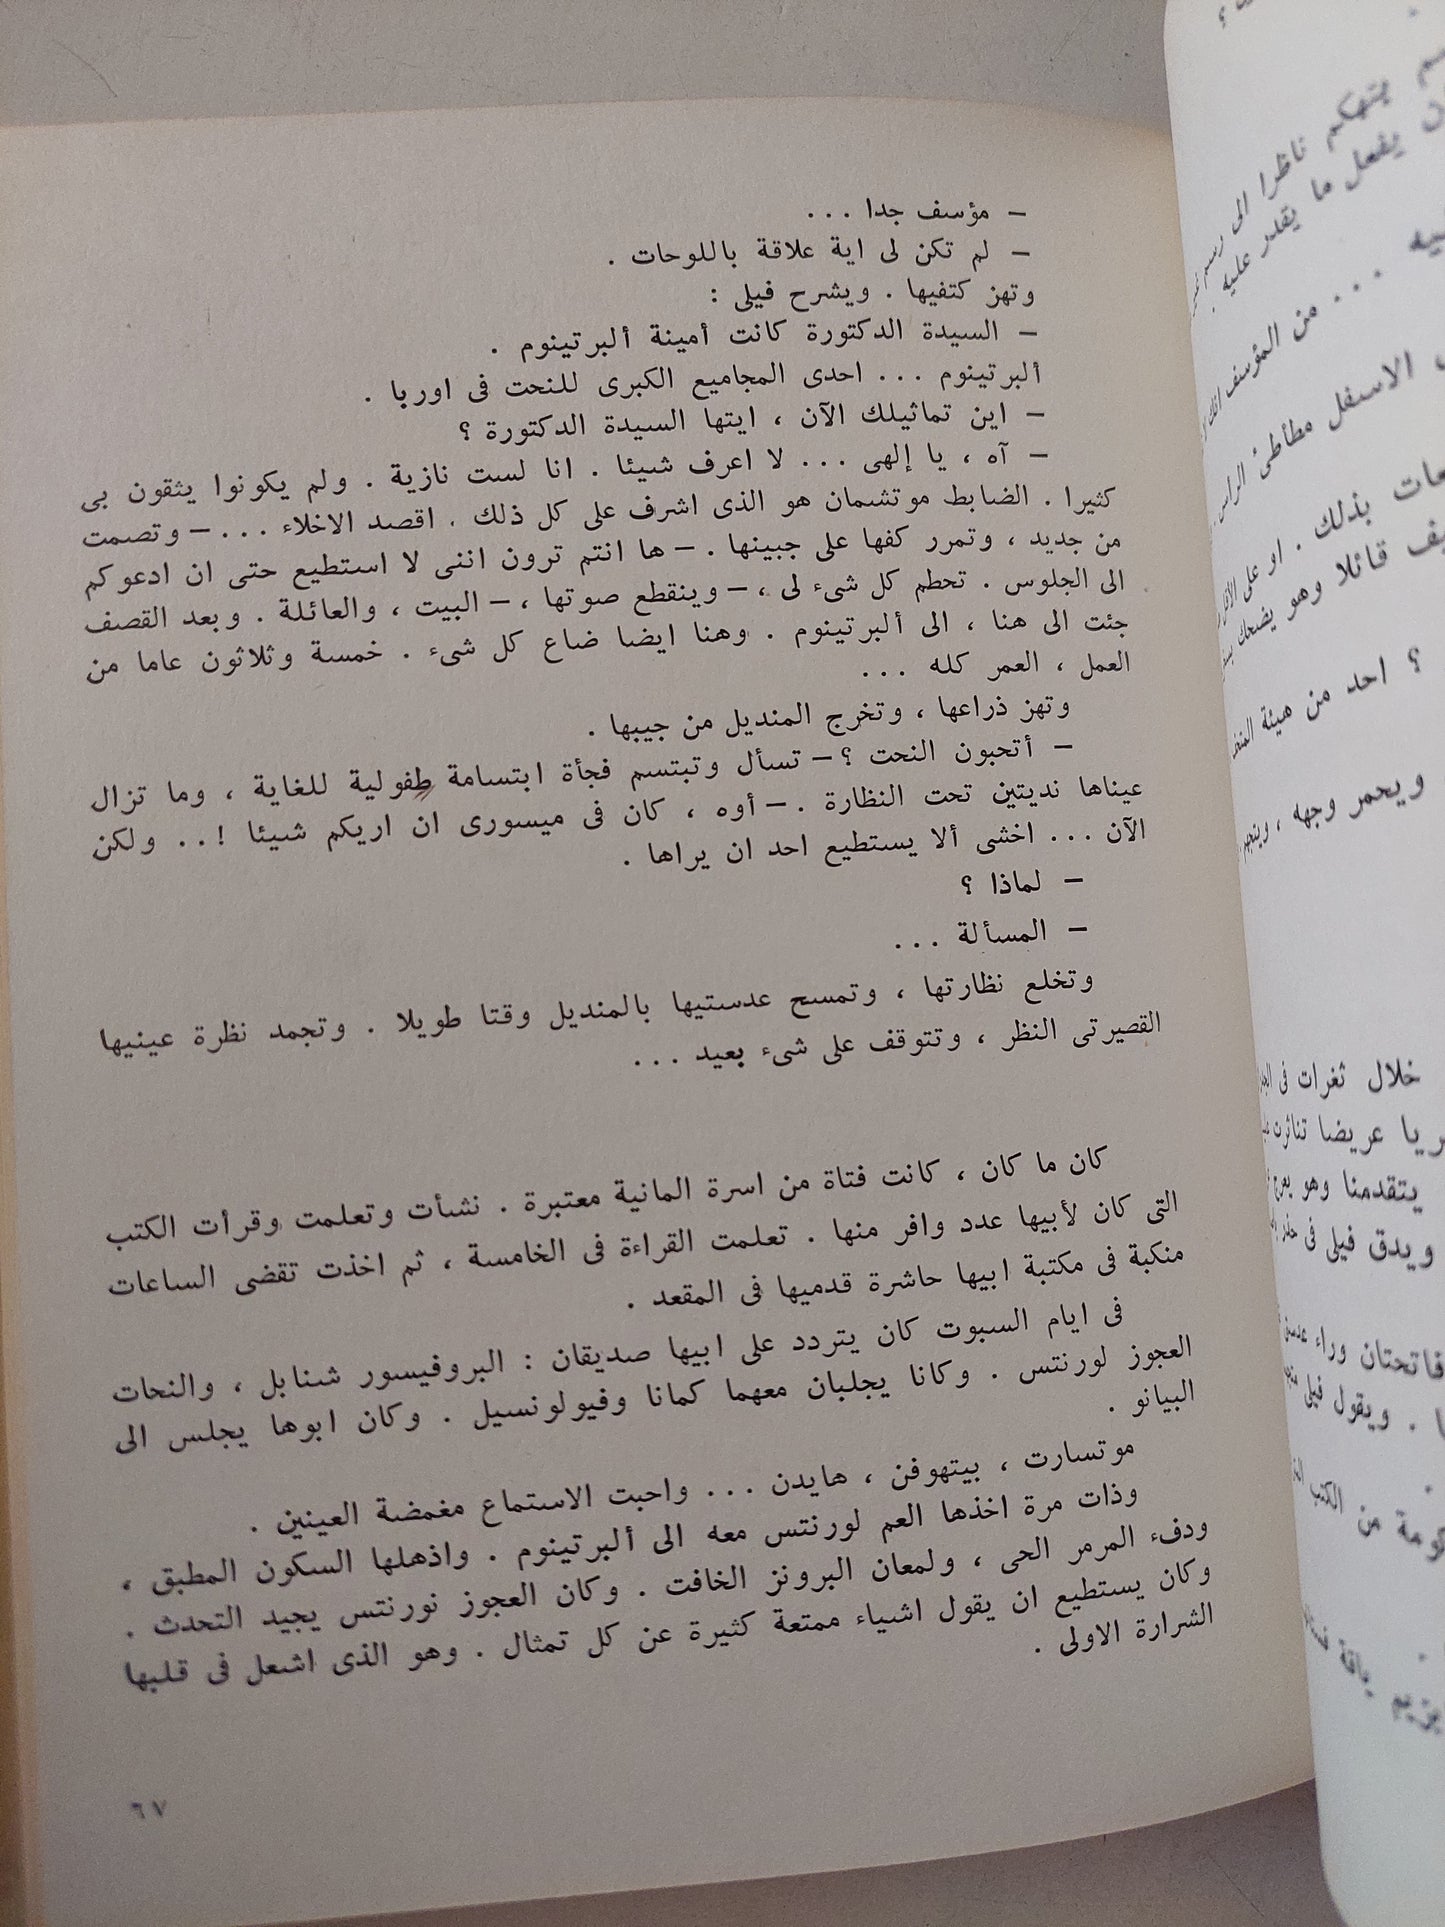 – مؤسف جدا ...
– لم تكن لى اية علاقة باللوحات .
وتهز كتفيها . ويشرح فيلى :
– السيدة الدكتورة كانت أمينة ألبرتينوم .
ألبرتينوم ... احدى المجاميع الكبرى للنحت فى اوربا .
– اين تماثيلك الآن ، ايتها السيدة الدكتورة ؟
– آه ، يا إلهى ... لا اعرف شيئا . انا لست نازية . ولم يكونوا يثقون بى
كثيرا . الضابط موتشمان هو الذى اشرف على كل ذلك . اقصد الاخلاء ... – وتصمت
من جديد ، وتمرر كفها على جبينها . – ها انتم ترون اننى لا استطيع حتى ان ادعوكم
الى الجلوس . تحطم كل شىء لى ، – وينقطع صوتها ، – البيت ، والعائلة . وبعد القصف
جئت الى هنا ، الى ألبرتينوم . وهنا ايضا ضاع كل شىء . خمسة وثلاثون عاما من
العمل ، العمر كله ...
وتهز ذراعها ، وتخرج المنديل من جيبها .
– أتحبون النحت ؟ – تسأل وتبتسم فجأة ابتسامة طفولية للغاية ، وما تزال
عيناها نديتين تحت النظارة . – أوه ، كان فى ميسورى ان اريكم شيئا !.. ولكن
الآن ... اخشى ألا يستطيع احد ان يراها .
– لماذا ؟
– المسألة ...
وتخلع نظارتها ، وتمسح عدستيها بالمنديل وقتا طويلا . وتجمد نظرة عينيها
القصيرتى النظر ، وتتوقف على شىء بعيد ...
كان ما كان ، كانت فتاة من اسرة المانية معتبرة . نشأت وتعلمت وقرأت الكتب
التى كان لأبيها عدد وافر منها . تعلمت القراءة فى الخامسة ، ثم اخذت تقضى الساعات
منكبة فى مكتبة ابيها حاشرة قدميها فى المقعد .
فى ايام السبوت كان يتردد على ابيها صديقان : البروفيسور شنابل ، والنحات
العجوز لورنتس . وكانا يجلبان معهما كمانا وفيولونسيل . وكان ابوها يجلس الى
البيانو .
موتسارت ، بيتهوفن ، هايدن ... واحبت الاستماع مغمضة العينين .
وذات مرة اخذها العم لورنتس معه الى ألبرتينوم . واذهلها السكون المطبق ،
ودفء المرمر الحى ، ولمعان البرونز الخافت . وكان العجوز نورنتس يجيد التحدث .
وكان يستطيع ان يقول اشياء ممتعة كثيرة عن كل تمثال . وهو الذى اشعل فى قلبها
الشرارة الاولى .
٦٧
يتهكم ناظرا الى رسم
يفعل ما يقدر عليه .
... من المؤسف
الاسفل مطأطئ الراس
بذلك . او على
قائلا وهو يضحك
؟ احد من هيئة
ويحمر وجهه ،
خلال ثغرات فى
عريضا تناثرت
يتقدمنا وهو
ويدق فيلى فى
فاتحتان وراء
. ويقول فيلى
من الكتب